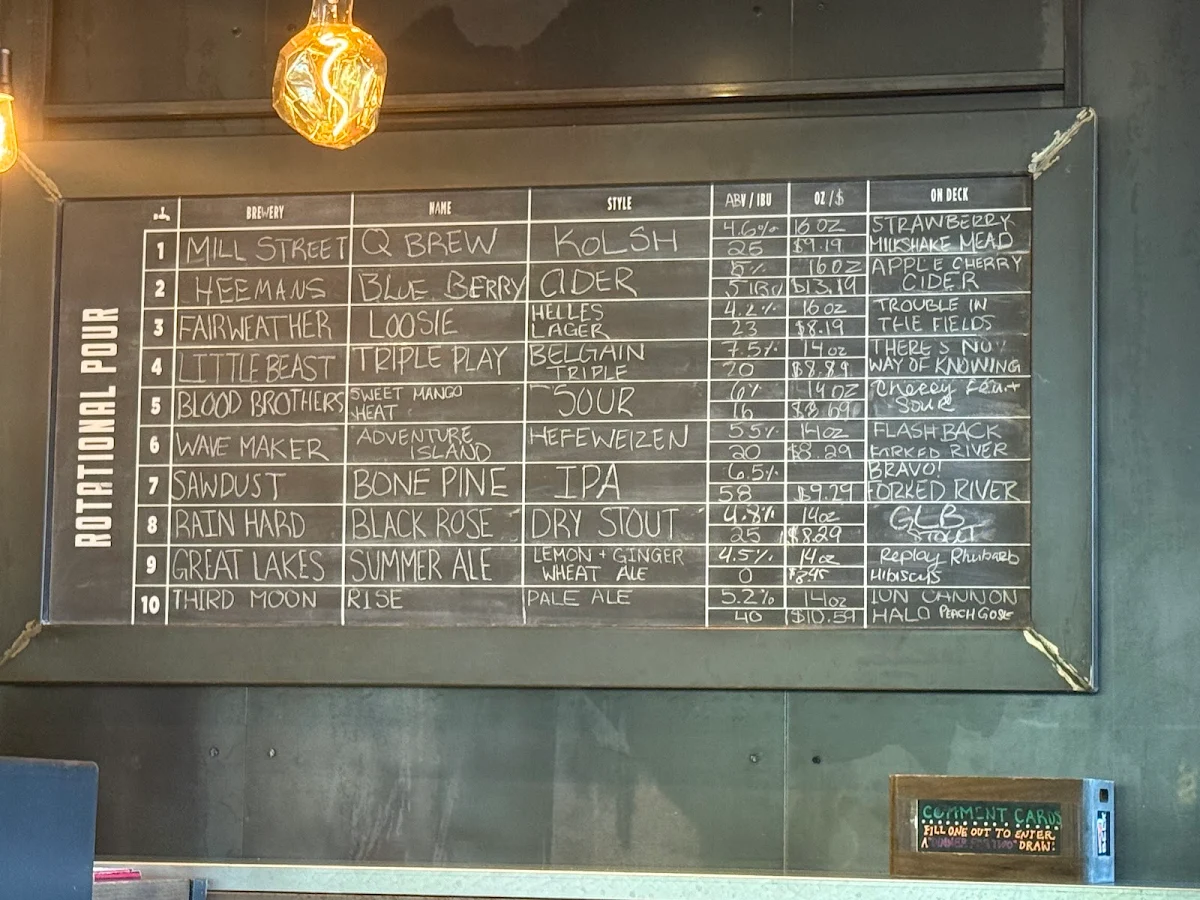 ROTATIONAL POUR
BREWERY NAME STYLE ABV / IBU OZ / $ ON DECK
1 MILL STREET Q BREW KOLSH 4.6% 16 OZ STRAWBERRY
25 $9.19 MILKSHAKE MEAD
2 HEEMANS BLUE BERRY CIDER 5% 16 OZ APPLE CHERRY
$13.19 CIDER
3 FAIRWEATHER LOOSIE HELLES 4.2% 16 OZ TROUBLE IN
LAGER 23 $8.19 THE FIELDS
4 LITTLE BEAST TRIPLE PLAY BELGAIN 7.5% 14 OZ THERE'S NO
TRIPLE 20 $8.89 WAY OF KNOWING
5 BLOOD BROTHERS SWEET MANGO SOUR 6% 14 OZ Cherry
HEAT 16 SOUR
6 WAVE MAKER ADVENTURE HEFEWEIZEN 5.5% 14 OZ FLASHBACK
ISLAND 20 $8.29 FORKED RIVER
7 SAWDUST BONE PINE IPA 6.5% BRAVO!
58 $9.29 FORKED RIVER
8 RAIN HARD BLACK ROSE DRY STOUT 4.8% 14 oz GLB
25 $8.29 STOUT
9 GREAT LAKES SUMMER ALE LEMON + GINGER 4.5% 14 oz Replay Rhubarb
WHEAT ALE 0 Hibiscus
10 THIRD MOON RISE PALE ALE 5.2% 14 oz ION CANNON
40 $10.59 HALO PEACH GOSE
COMMENT CARDS
FILL ONE OUT TO ENTER
A DRAW!